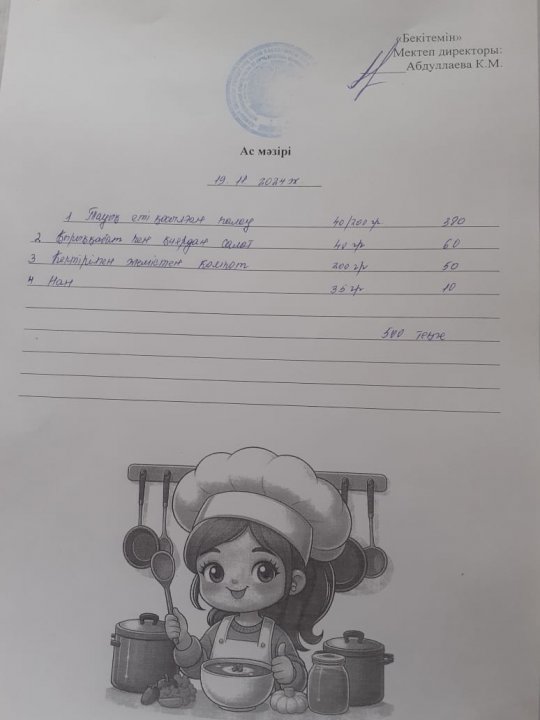 «Бекітемін»
Мектеп директоры:
Абдуллаева К.М.
Ас мәзірі
19. 11 2024ж
1 Тауық еті қосылған палау 40/200гр 380
2 Қырыққабат пен қиярдан салат 40 гр 60
3 Кептірілген жемістен компот 200 гр 50
4 Нан 35 гр 10
500 теңге